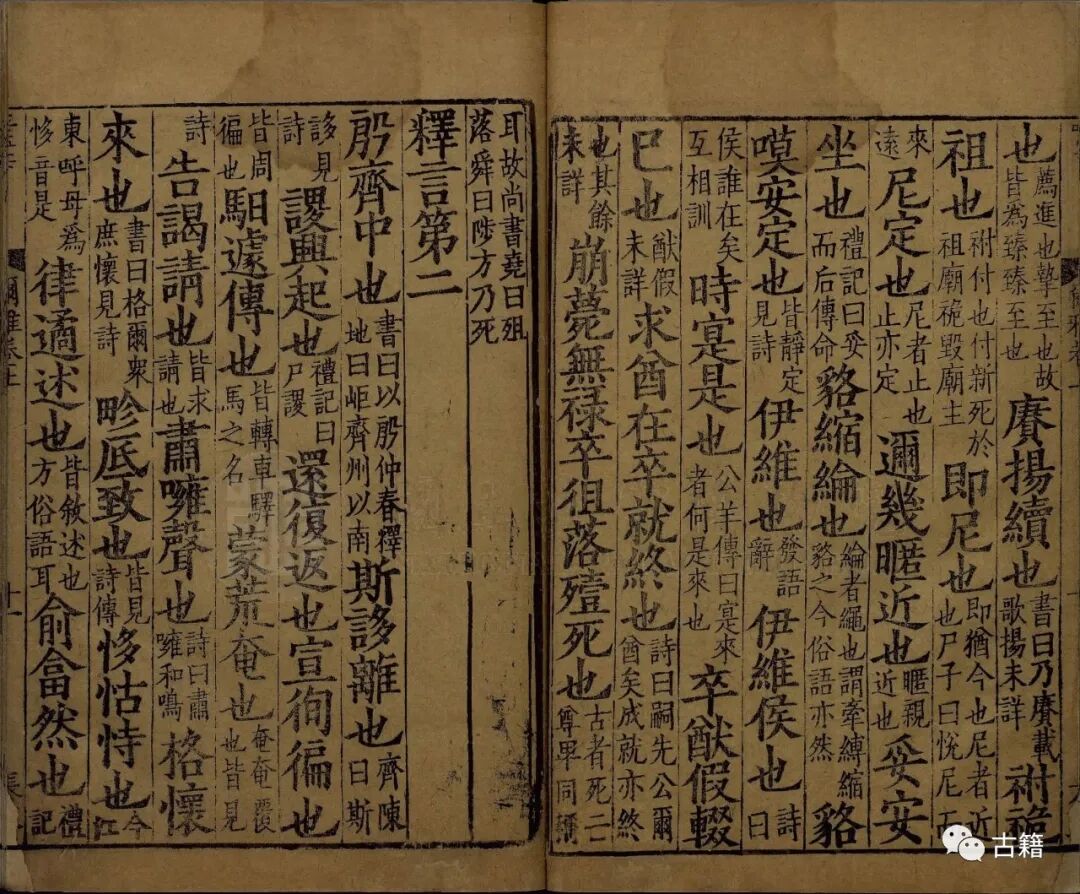 也薦進也摯至也故皆為臻臻至也賡揚續也書曰乃賡載歌揚未詳祔祪
祖也祔付也付新死於祖廟祪毀廟主即尼也即猶今也尼者近也尸子曰悅尼而
來遠尼定也尼者止也止亦定邇幾暱近也暱親近也妥安
坐也禮記曰妥而后傳命貉縮綸也綸者繩也謂牽縛縮貉之今俗語亦然貉
嗼安定也皆靜定見詩伊維也發語辭伊維侯也詩曰
侯誰在矣互相訓時寔是也公羊傳曰寔來者何是來也卒猷假輟
已也猷假未詳求酋在卒就終也詩曰嗣先公爾酋矣成就亦終
也其餘未詳崩薨無祿卒徂落殪死也古者死亡尊卑同稱
耳故尚書堯曰殂落舜曰陟方乃死
釋言第二
殷齊中也書曰以殷仲春釋地曰岠齊州以南斯誃離也齊陳曰斯
誃見詩謖興起也禮記曰尸謖還復返也宣徇徧也
皆周徧也馹遽傳也皆轉車驛馬之名蒙荒奄也奄奄覆也皆見
詩告謁請也皆求請也肅噰聲也詩曰肅噰和鳴格懷
來也書曰格爾眾庶懷見詩畛厎致也皆見詩傳恀怙恃也今江
東呼母為恀音是律遹述也皆敘述也方俗語耳俞畣然也禮記
爾雅卷上
十一
古籍